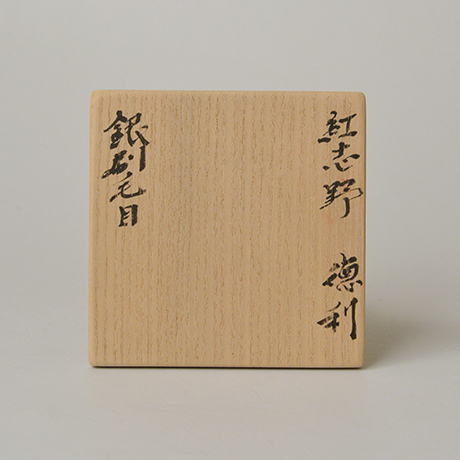 紅志野 徳利
銀刷毛目